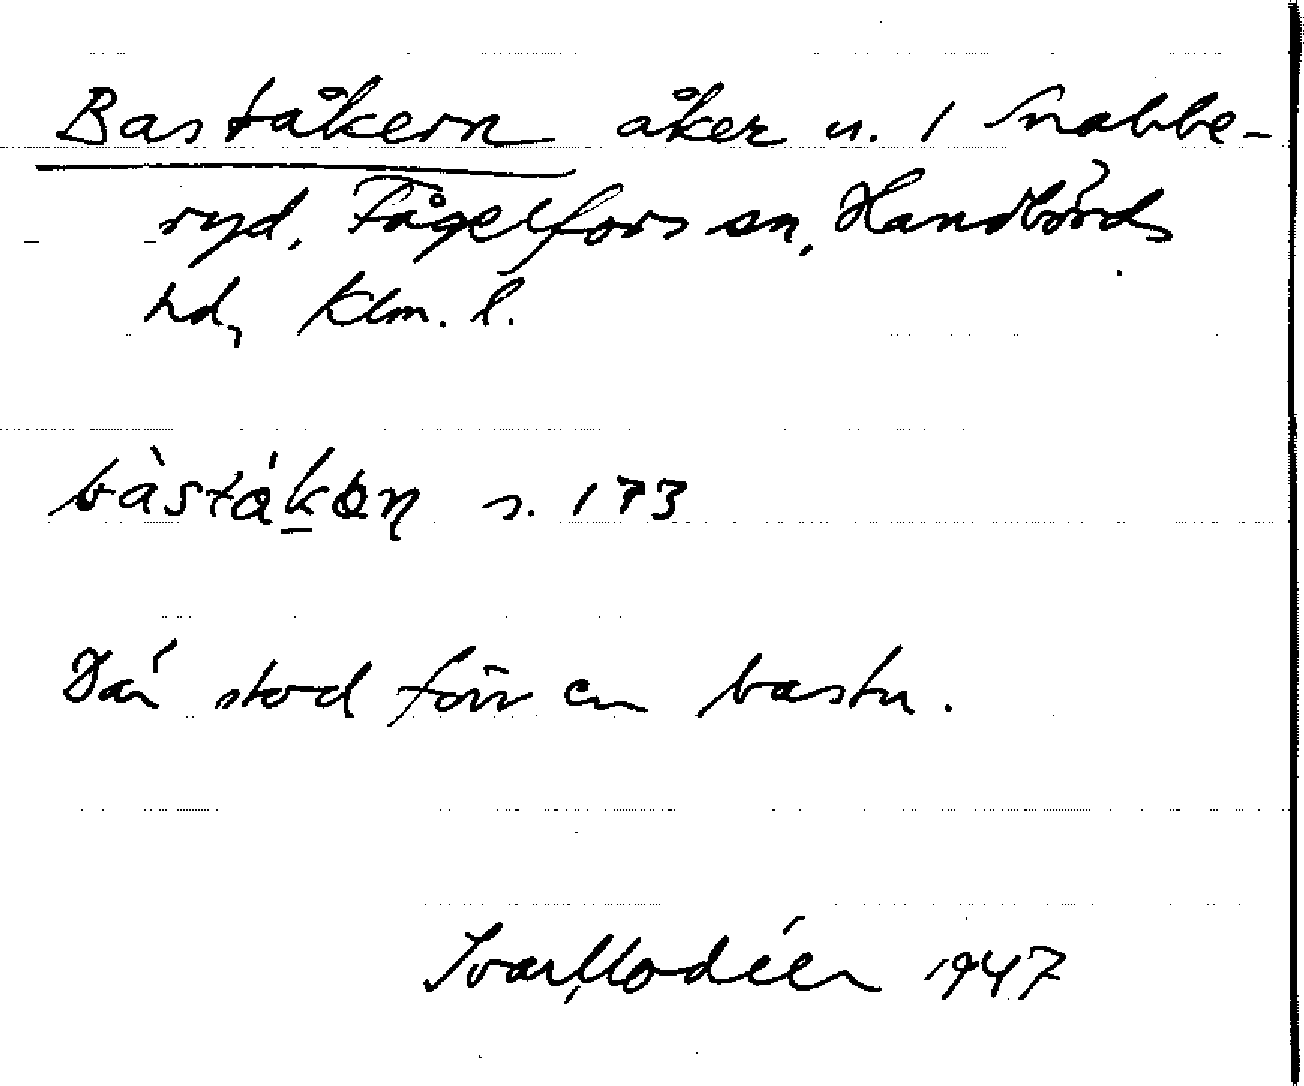 Baståkern åker u. 1 Snabbe-
ryd, Fågelfors sn, Handbörds
hd, Klm. l.
bàstákən s. 173
Där stod förr en bastu.
Ivar Modéer 1947